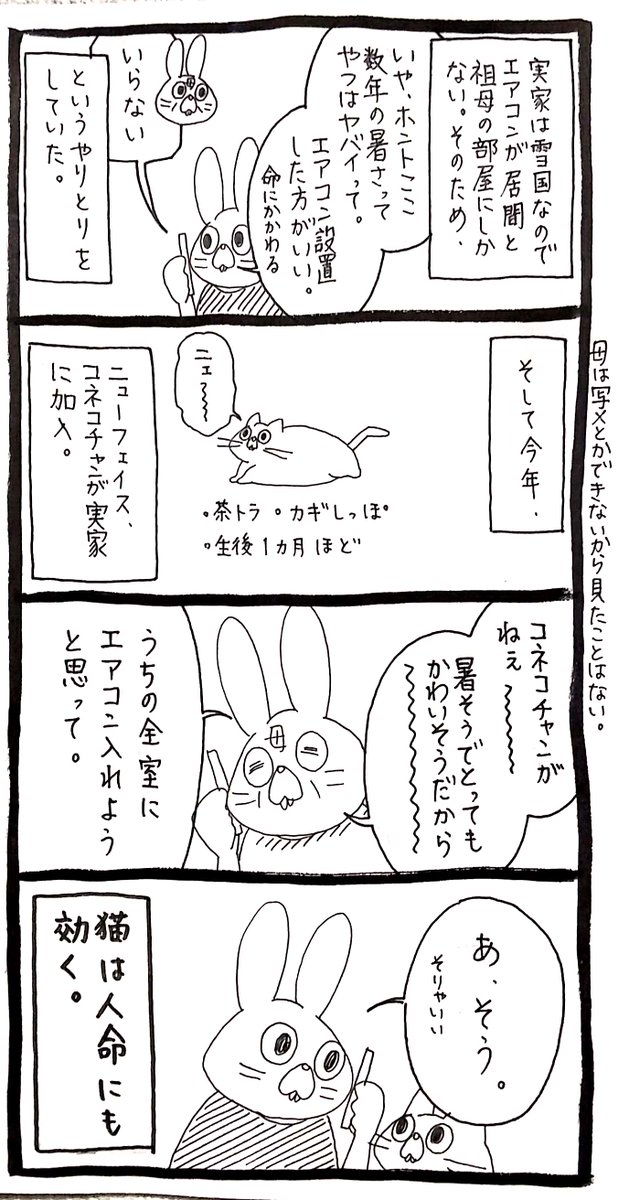 実家は雪国なので
エアコンが居間と
祖母の部屋にしか
ない。そのため、
いや、ホントここ
数年の暑さって
やつはヤバイって。
エアコン設置
した方がいい。
命にかかわる
母
いらない
というやりとりを
していた。
そして今年、
ニェ〜〜
・茶トラ ・カギしっぽ
・生後1カ月ほど
ニューフェイス、
コネコチャンが実家
に加入。
母は写メとかできないから見たことはない。
コネコチャンが
ねぇ〜〜
暑そうでとっても
かわいそうだから
〜〜
母
うちの全室に
エアコン入れよう
と思って。
あ、そう。
そりゃいい
猫は人命にも
効く。